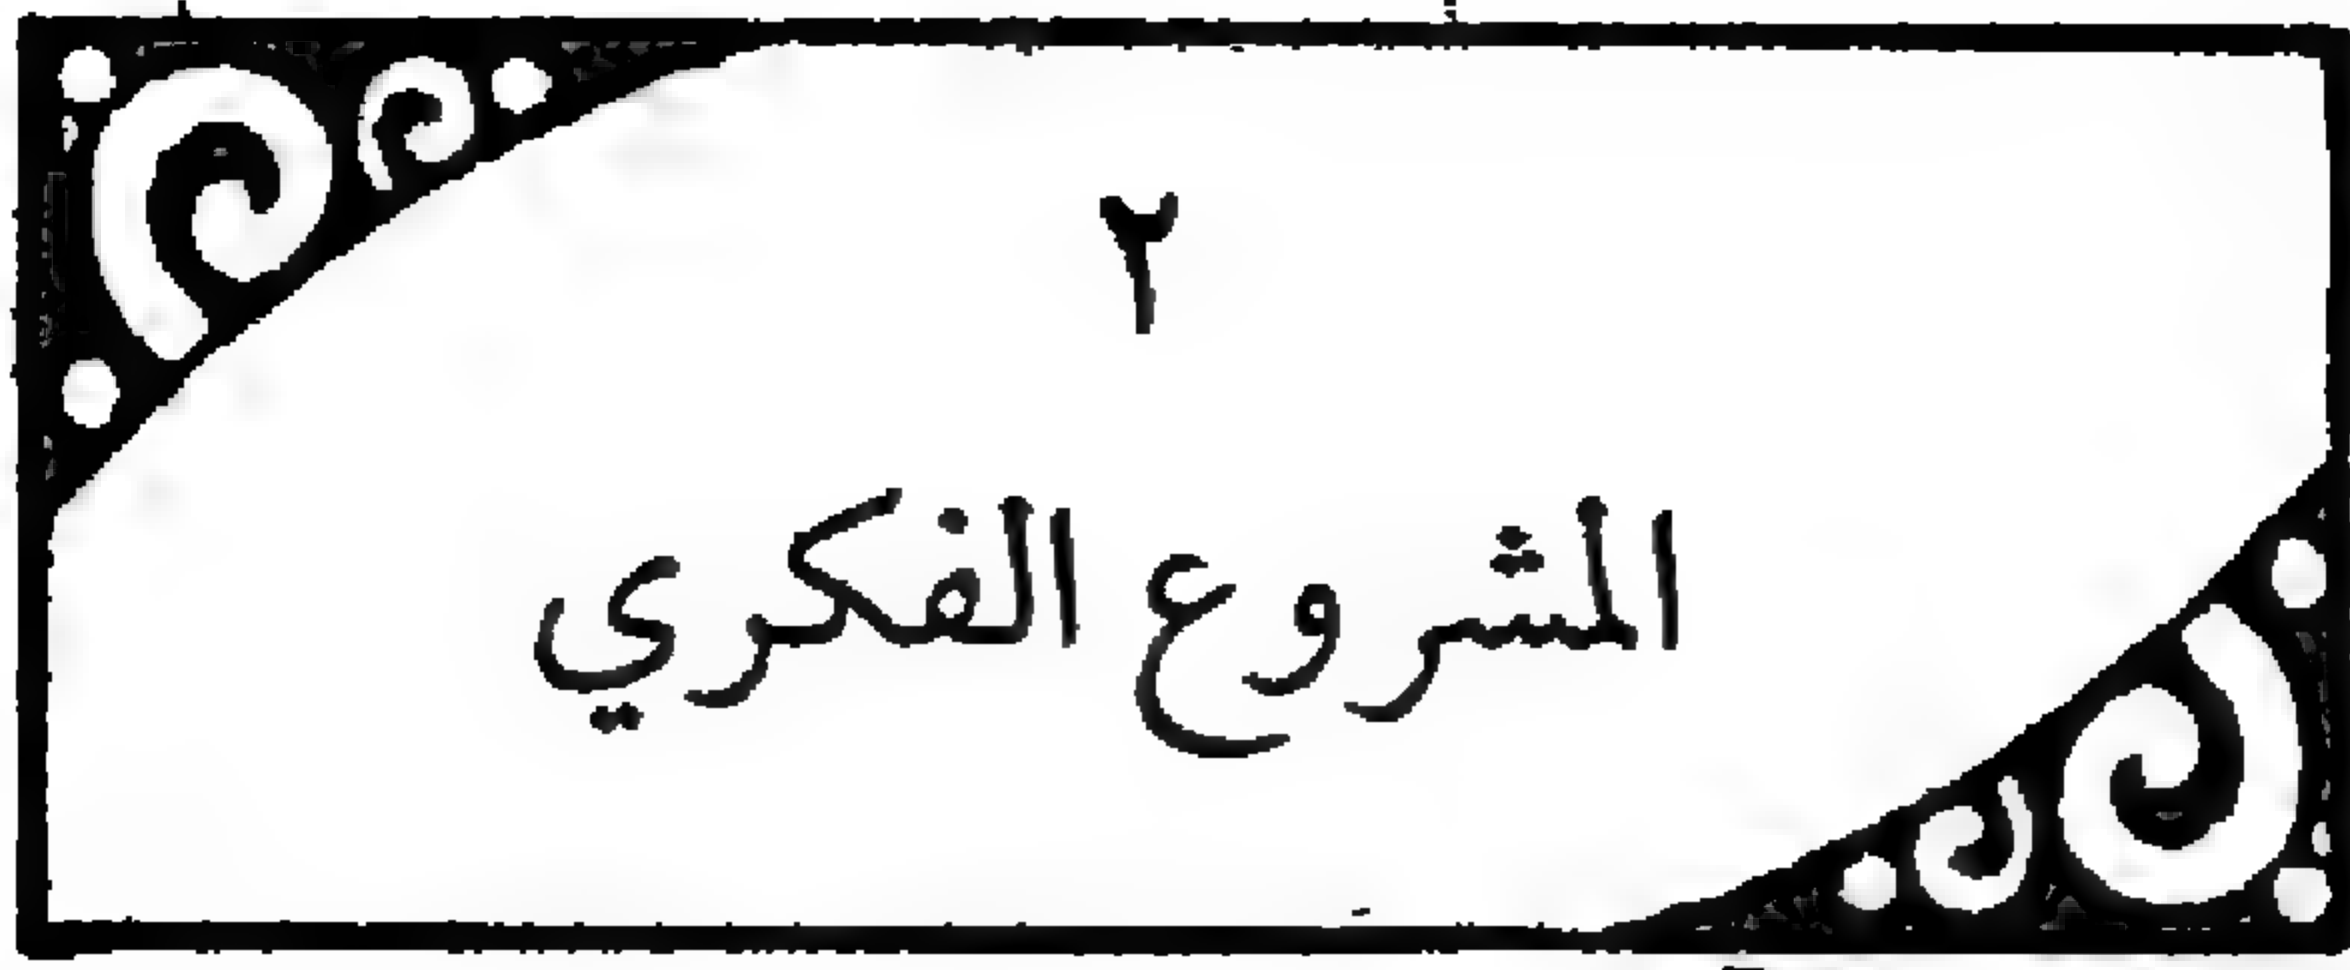 ٢
المشروع الفكري